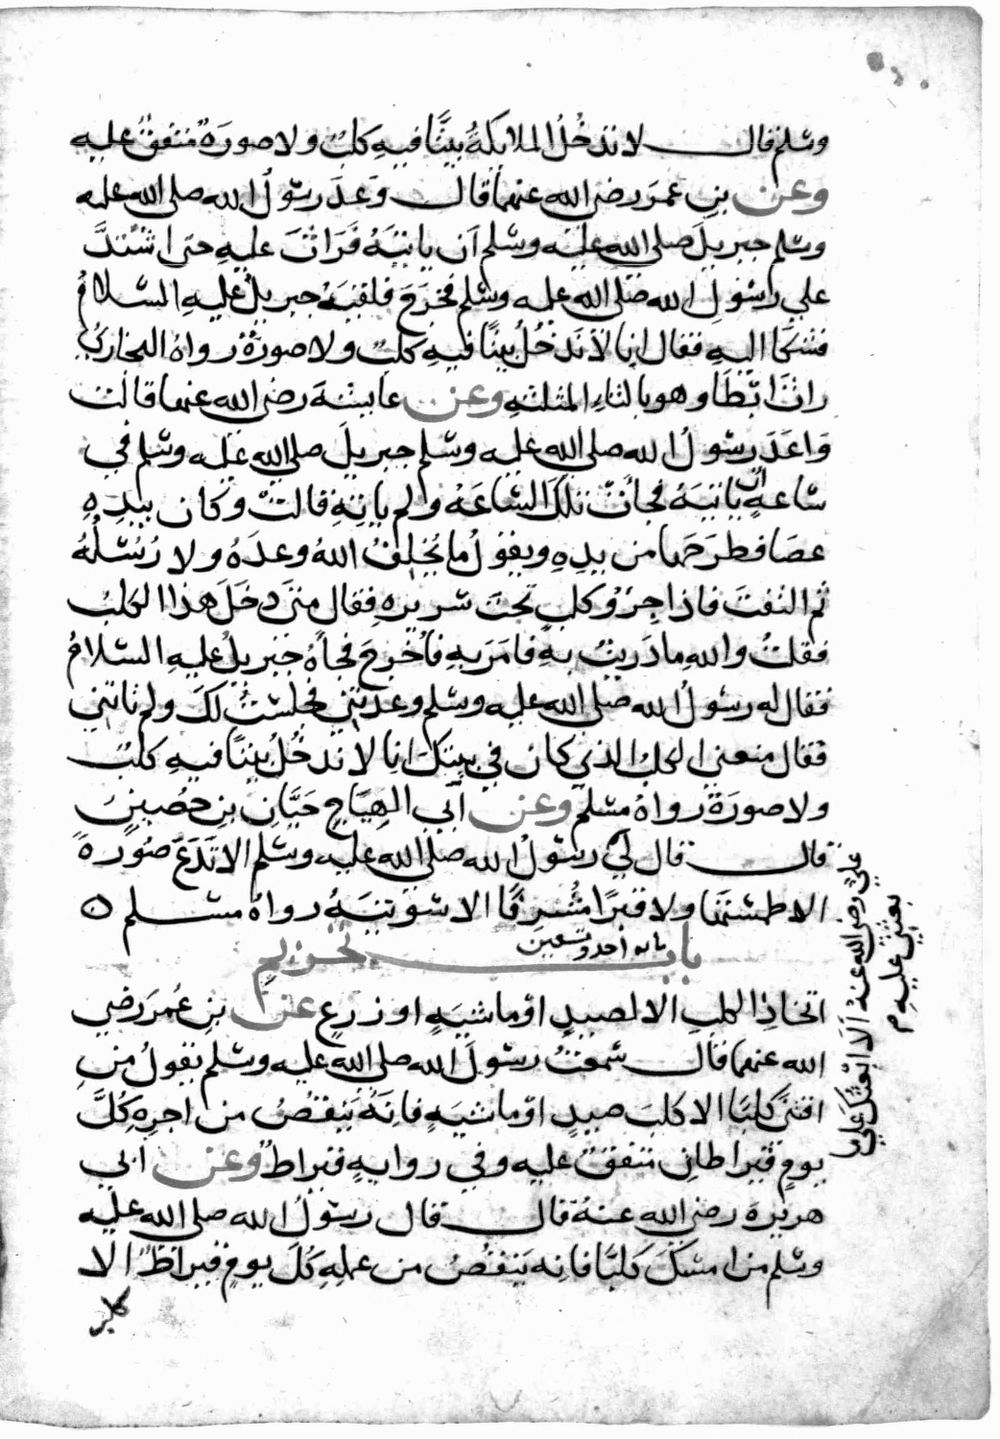 وسلم قال لا تدخل الملايكةُ بيتًا فيهِ كلبٌ ولا صورَةٌ متفقٌ عليهِ
وعن بنِ عمرَ رضي الله عنهما قال وَعدَ رسُولُ الله صلى الله عليه
وسلم جبريلَ صلى الله عليه وسلم اَن ياتيَهُ فَرَاثَ عليهِ حتى اشتدَّ
علي رسُولِ الله صلى الله عليه وسلم فخرَجَ فلقيَهُ جبريلُ عليهِ السلامُ
فشكا اليهِ فقال انا لا نَدخُلُ بيتًا فيهِ كلبٌ ولا صورةٌ رواهُ البخاري
راثَ ابطَا وهو بالثاءِ المثلثهِ وعن عايشةَ رضي الله عنها قالت
وَاعَدَ رسُولُ الله صلى الله عليه وسلم جبريلَ صلى الله عليه وسلم في
ساعةٍ ان ياتيَهُ فجأتْ تلكَ الساعَهُ ولم ياتِهِ قالتْ وكان بيدِهِ
عصَا فطرَحَها من يدِهِ ويقولُ ما يُخلِفُ اللهُ وعدَهُ ولا رُسُلُهُ
ثم التفتَ فاذا جِرْوُ كلبٍ تحتَ سريرِهِ فقال متَى دخَلَ هذا الكلبُ
فقلتُ والله ما دَريتُ بهِ فامَرَ بهِ فاُخرِجَ فجاهُ جبريلُ عليهِ السلامُ
فقال له رسُولُ الله صلى الله عليه وسلم وعدتَني فجلستُ لكَ ولم تاتني
فقال منعني الكلبُ الذي كان في بيتِكَ انا لا ندخُلُ بيتًا فيهِ كلبٌ
ولا صورَةٌ رواهُ مسلم وعن ابي الهيَّاجِ حَيَّانِ بنِ حُصَينٍ
قال قال لي رسُولُ الله صلى الله عليه وسلم الا تَدَعَ صُورةً
الا طمستَها ولا قبرًا مُشرِفًا الا سَوَّيتَهُ رواهُ مسلم ه
باب تحريمِ
بابه احد وتسعين
اتخاذِ الكلبِ الا لصيدٍ اوْ ماشيَهٍ او زرعٍ عن بنِ عُمرَ رضي
الله عنهما قال سمعتُ رسُولَ الله صلى الله عليه وسلم يقولُ منِ
اقتنَى كلبًا الا كلبَ صيدٍ اوْ ماشيَهٍ فانهُ يَنقُصُ من اجرِهِ كلَّ
يومٍ قيراطانِ متفقٌ عليه وفي روايهٍ قيراطٌ وعن ابي
هريرةَ رضي الله عنهُ قال قال رسُولُ الله صلى الله عليه
وسلم من امسكَ كلبًا فانه يَنقُصُ من عملِهِ كلَّ يومٍ قيراطٌ الا
كلب
علي رضي الله عنه الَا ابعثُكَ علي
بعثني عليهِ م